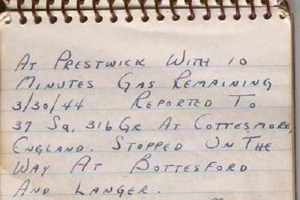 At Prestwick With 10
Minutes Gas Remaining
3/30/44 Reported To
37 Sq. 316 Gr At Cottesmore,
England. Stopped On The
Way At Bottesford
And Langer.